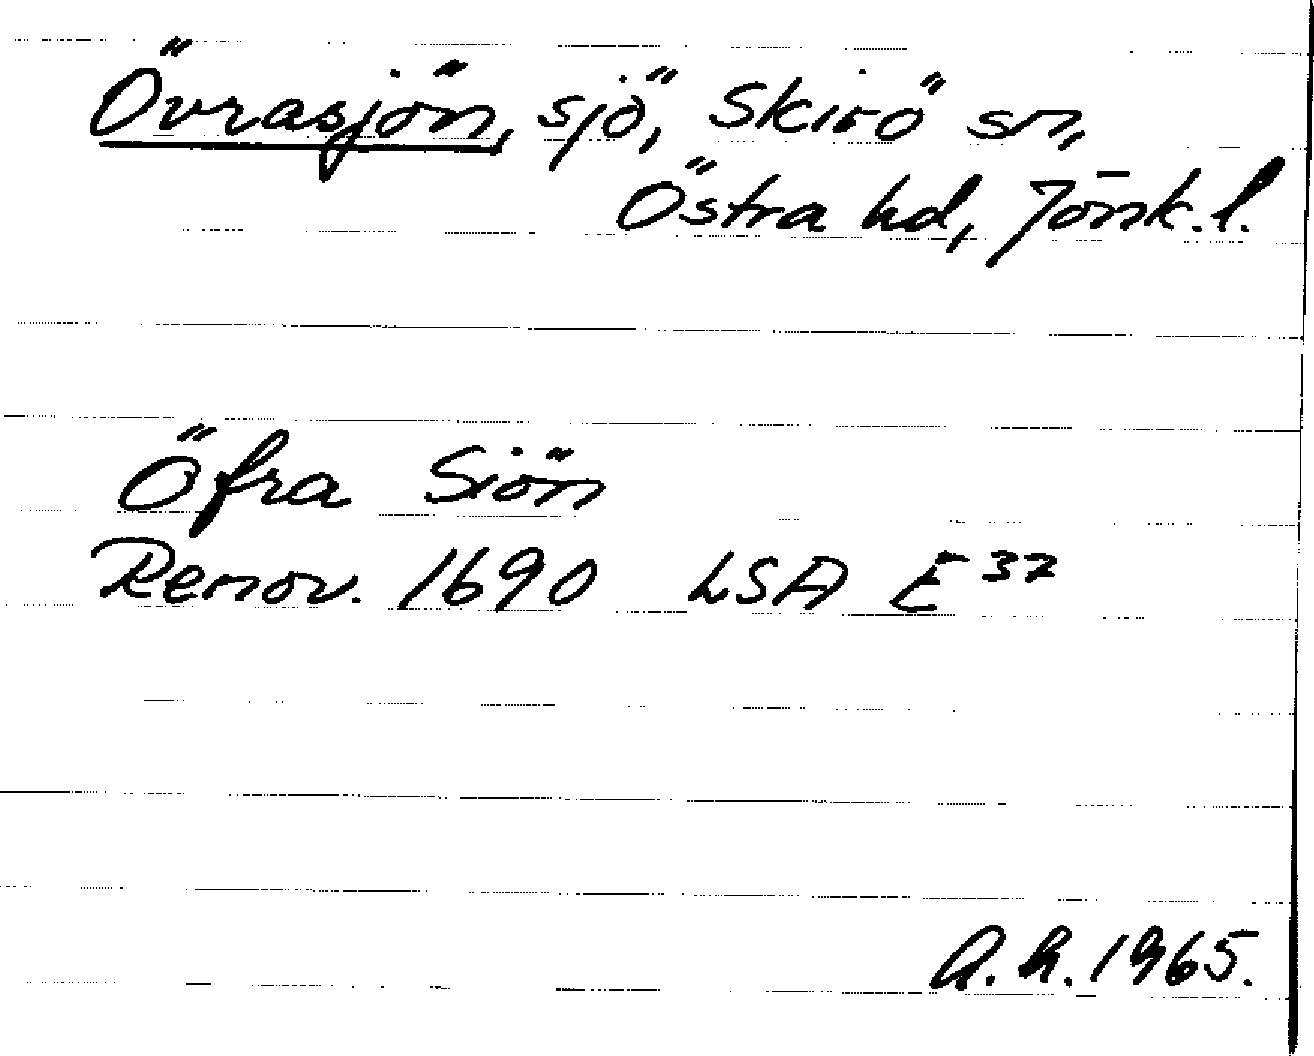 Övrasjön, sjö, Skirö sn,
Östra hd, Jönk. l.
Öfra Siön
Renov. 1690 LSA E 37
A. h. 1965.